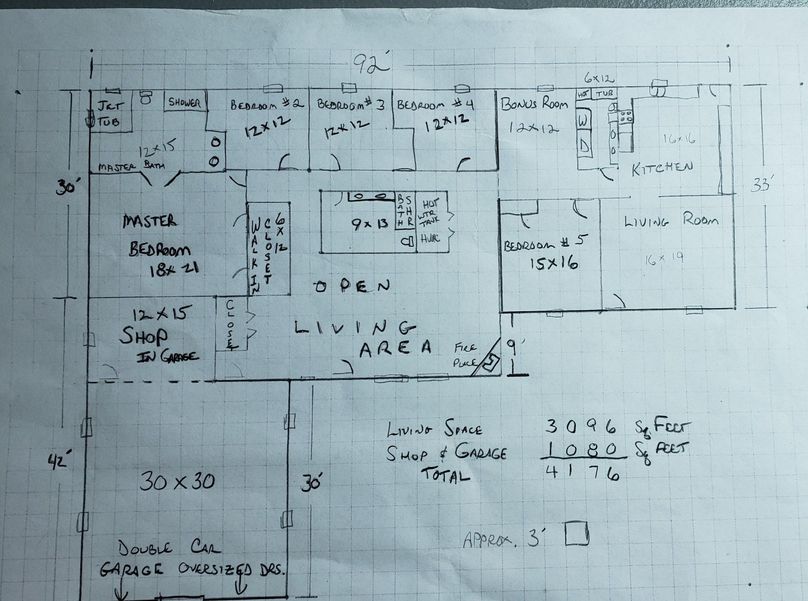 92'
6x12
JET TUB
SHOWER
12x15
MASTER BATH
BEDROOM #2
12x12
BEDROOM #3
12x12
BEDROOM #4
12x12
BONUS ROOM
12x12
HOT
TUB
W
D
16x16
KITCHEN
30'
33'
MASTER
BEDROOM
18x21
WALK IN
CLOSET
6x12
9x13
BATH
SHR
HOT
WTR
TANK
HVAC
BEDROOM #5
15x16
LIVING ROOM
16x19
OPEN
LIVING
AREA
12x15
SHOP
IN GARAGE
CLOSET
FIRE
PLACE
9'
42'
30x30
30'
LIVING SPACE 3096 Sq FEET
SHOP & GARAGE 1080 Sq FEET
TOTAL 4176
APPROX. 3'
DOUBLE CAR
GARAGE OVERSIZED DRS.